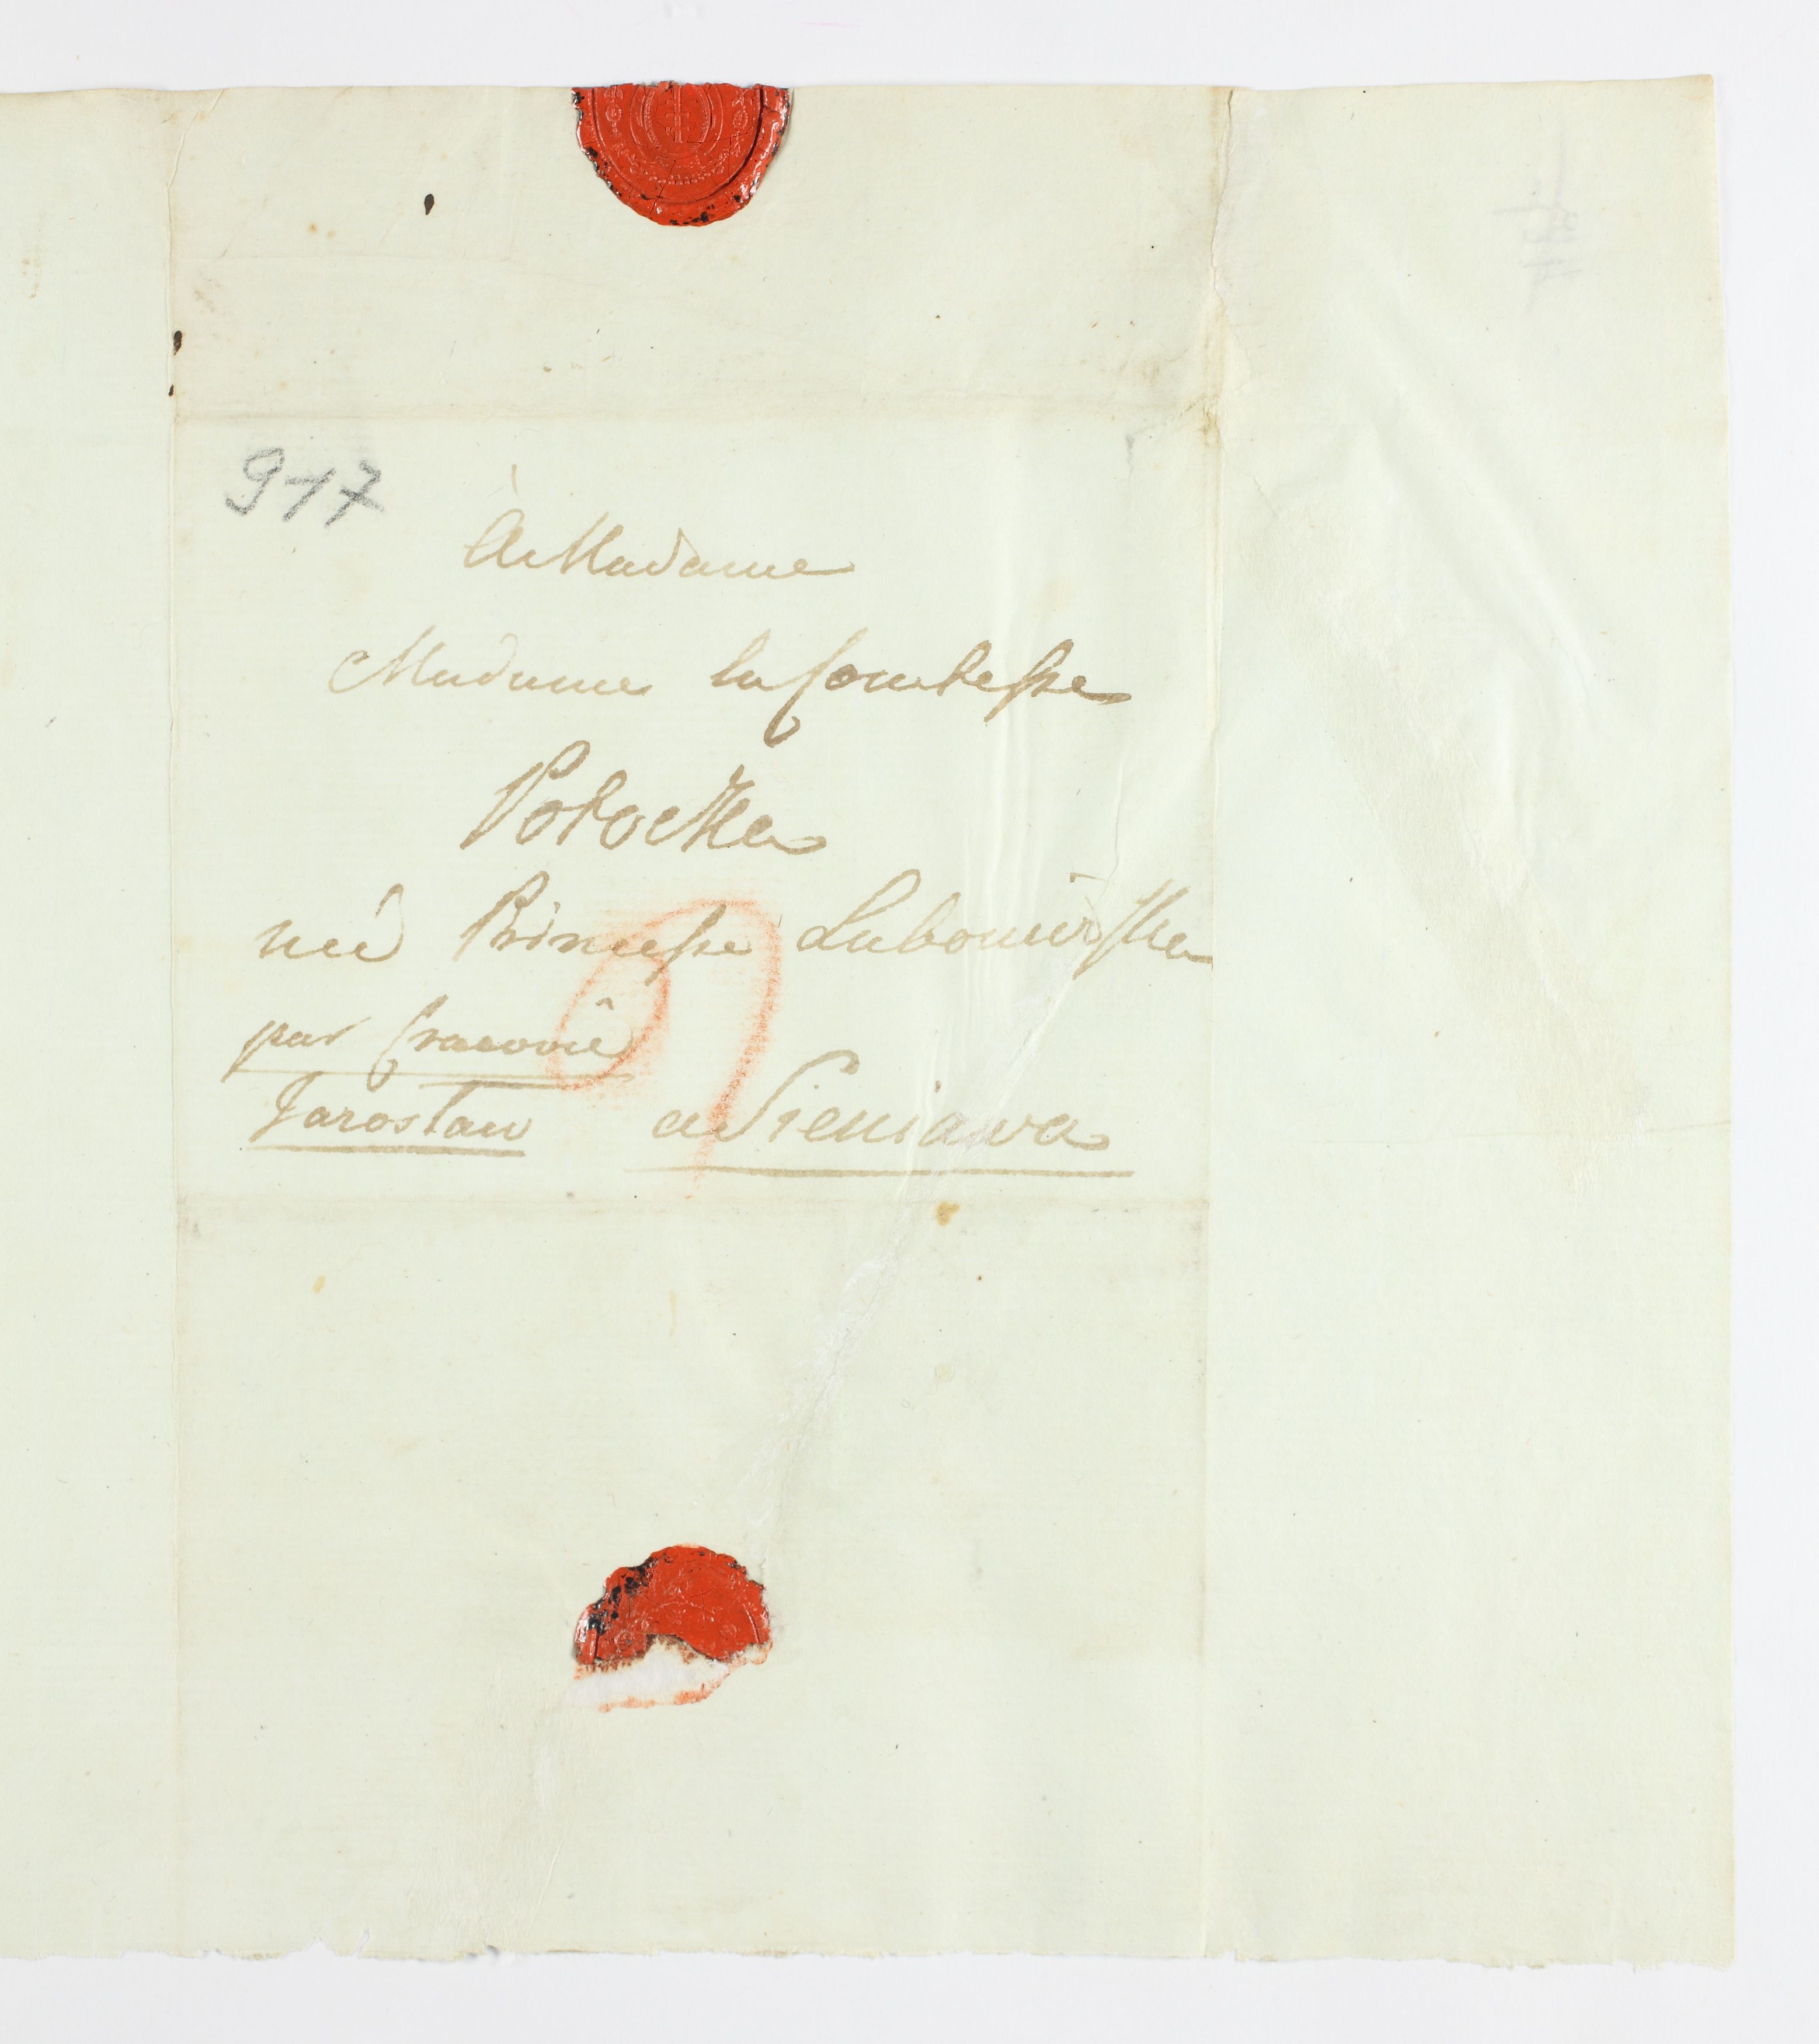 917
à Madame
Madame la Comtesse
Potocka
née Princesse Lubomirska
par Cracovie
Jaroslau a Sieniawa